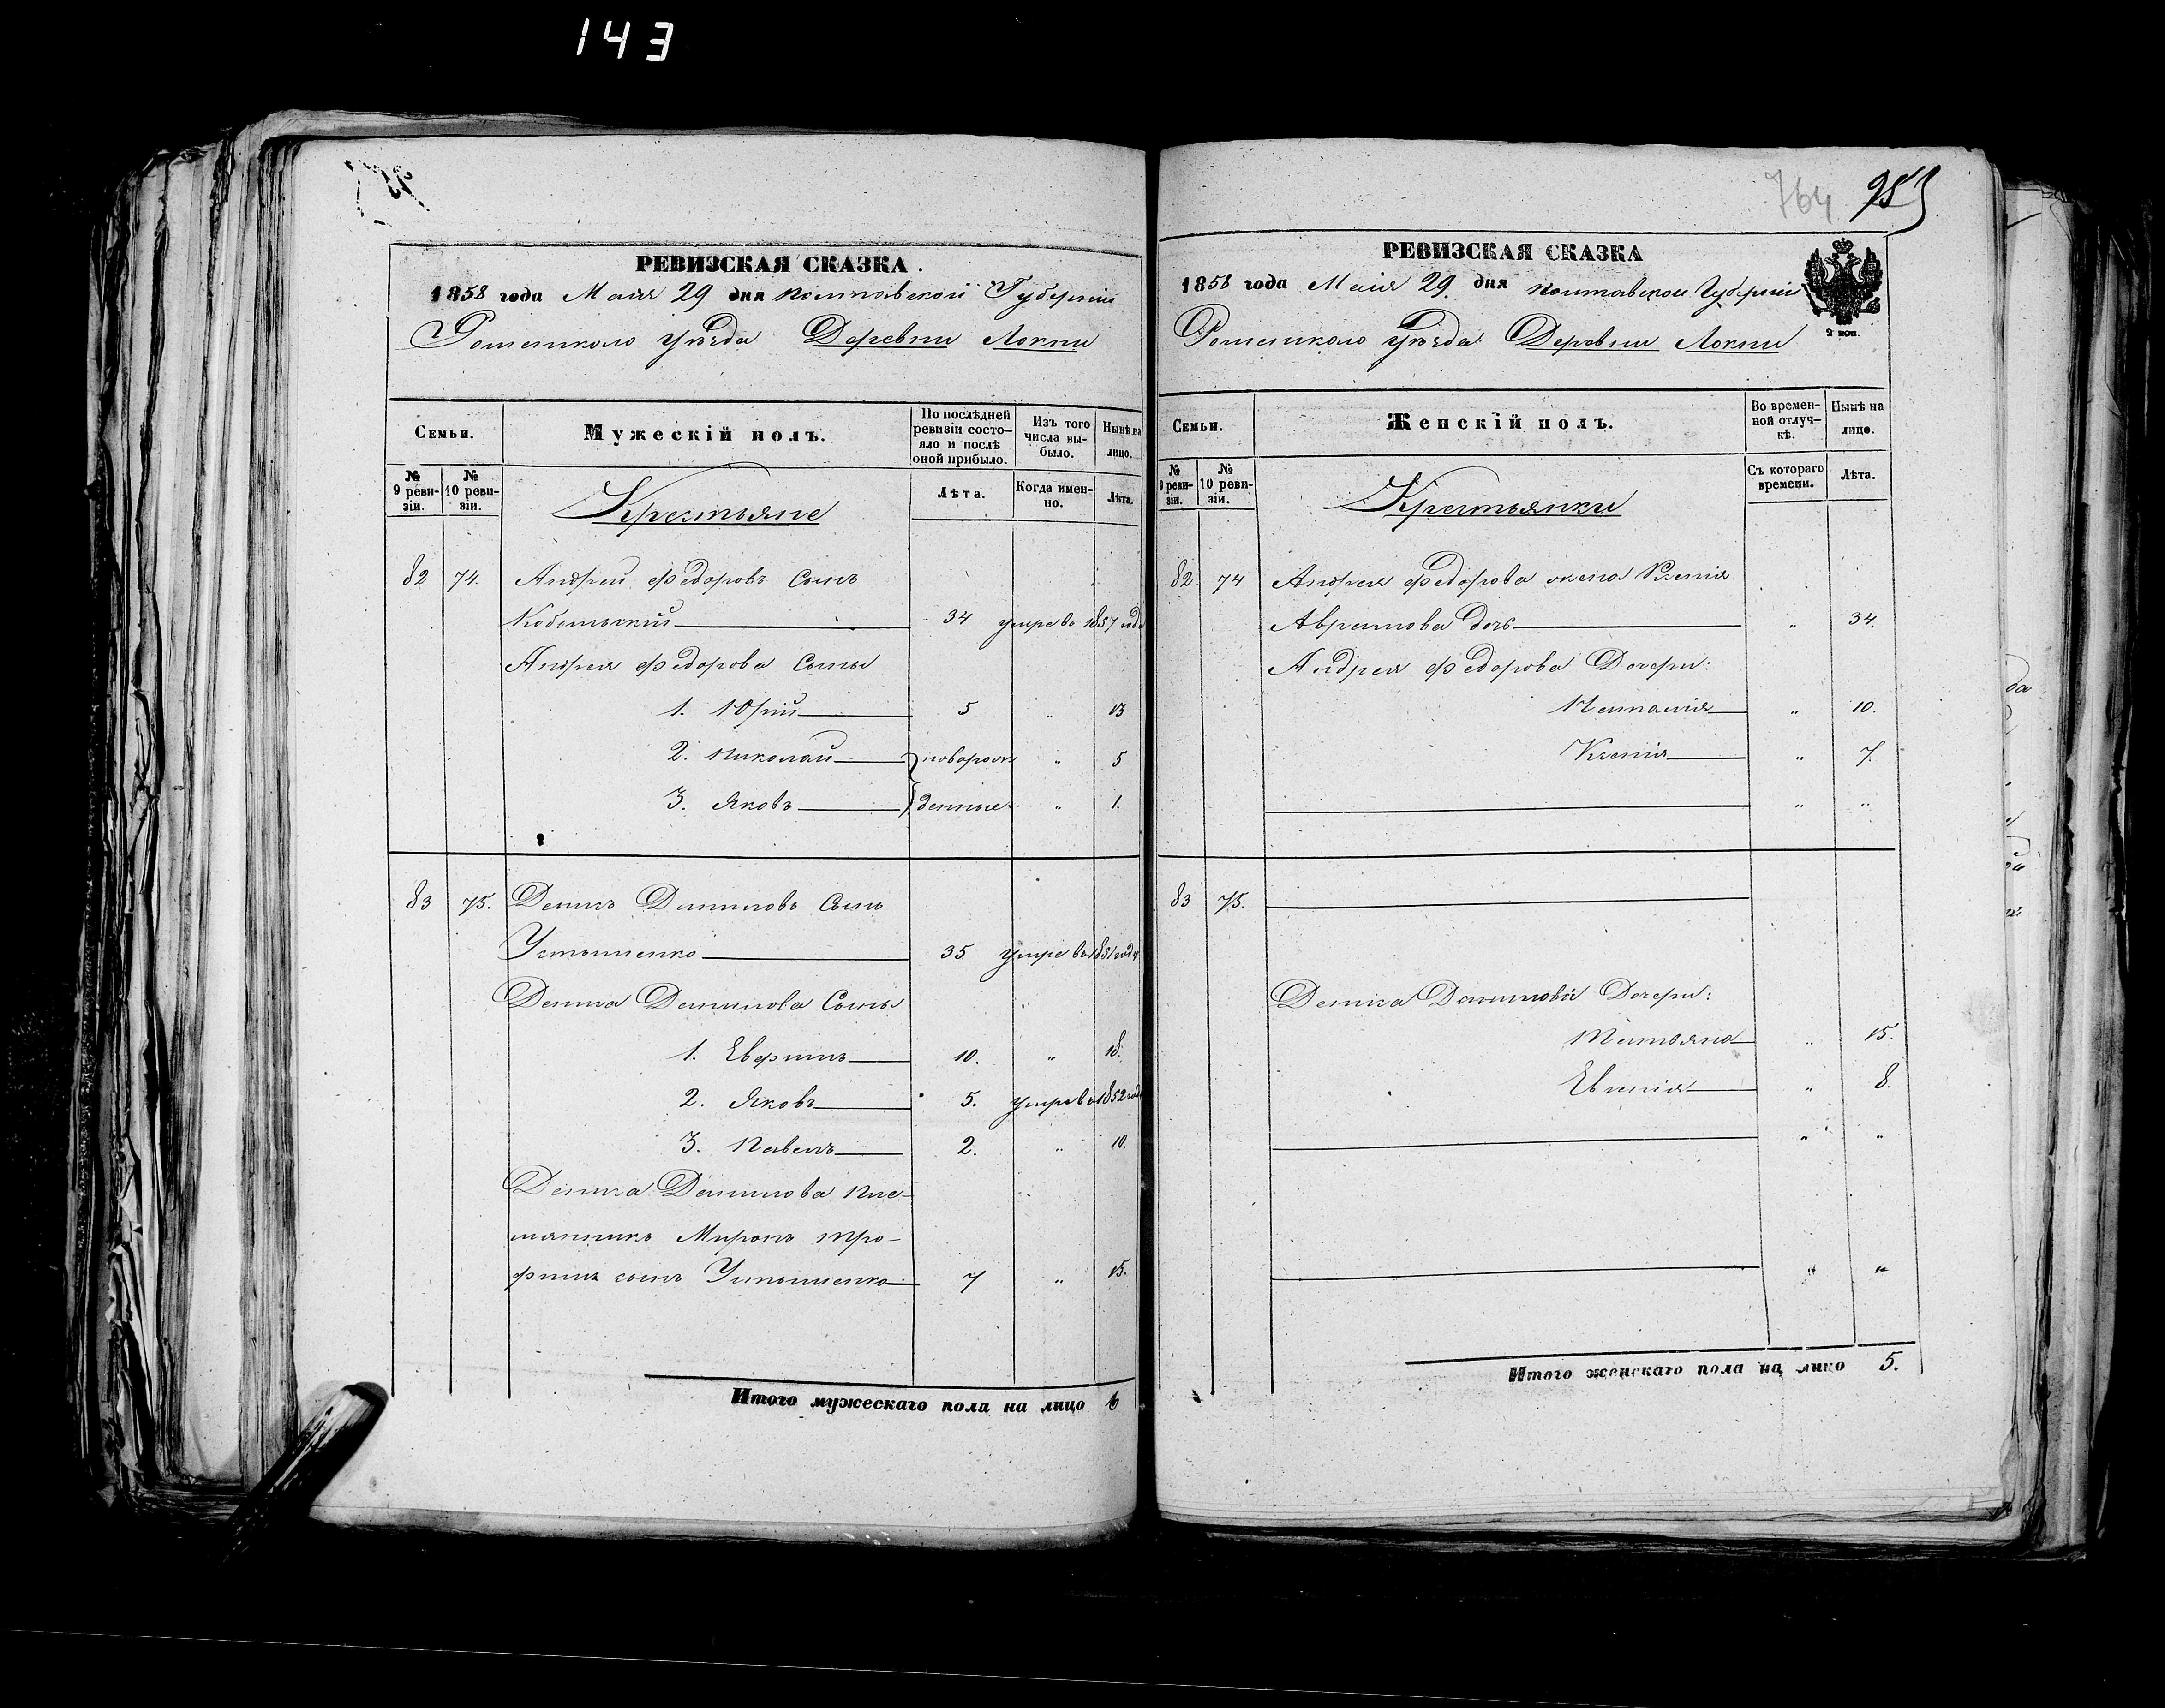 143
РЕВИЗСКАЯ СКАЗКА.
1858 года Маія 29 дня Полтавской Губерніи
Роменскаго Уѣзда Деревни Локни
Семьи.
Мужескій полъ.
По послѣдней ревизіи состояло и послѣ оной прибыло.
Изъ того числа выбыло.
Нынѣ на лицо.
№ 9 ревизіи.
№ 10 ревизіи.
Крестьяне
Лѣта.
Когда именно.
Лѣта.
82 74. Андрей Федоровъ Сынъ
34 умре въ 1857 году
Андрея Федорова Сыны
1. Юрій 5 „ 13
2. Николай новорож „ 5
3. Яковъ денные „ 1.
83 75. Денисъ Даниловъ Сынъ
Устименко 35 умре въ 1851 году
Дениса Данилова Сыны
1. Евфимъ 10. „ 18.
2. Яковъ 5. умре въ 1852 году
3. Павелъ 2. „ 10.
Дениса Данилова пле-
мянникъ Миронъ Тро-
фимъ сынъ Устименко 7 „ 15.
Итого мужескаго пола на лицо 6
764
РЕВИЗСКАЯ СКАЗКА
1858 года Маія 29 дня Полтавской Губерніи
2 коп.
Роменскаго Уѣзда Деревни Локни
Семьи.
Женскій полъ.
Во временной отлучкѣ.
Нынѣ на лицо.
№ 9 ревизіи.
№ 10 ревизіи.
Крестьянки
Съ котораго времени.
Лѣта.
82 74 Андрея Федорова жена Ксенія
Аврамова дочь „ 34.
Андрея Федорова Дочери:
Наталія „ 10.
Ксенія „ 7.
„ „
83 75.
Дениса Данилова Дочери:
Татьяна „ 15.
8.
„ „
„ „
Итого женскаго пола на лицо 5.